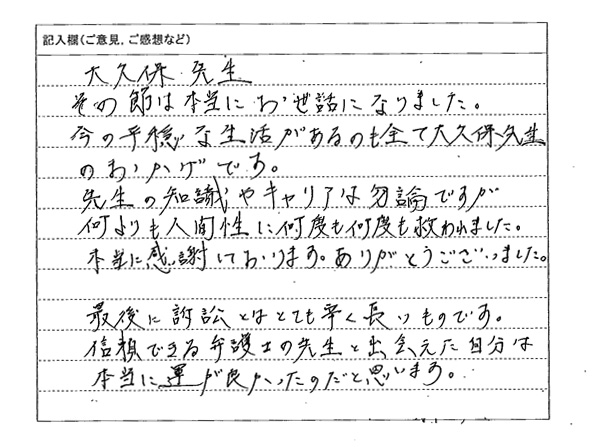 記入欄(ご意見，ご感想など)
大久保 先生
その節は本当にお世話になりました。
今の平穏な生活があるのも全て大久保先生
のおかげです。
先生の知識やキャリアは勿論ですが
何よりも人間性に何度も何度も救われました。
本当に感謝しております。ありがとうございました。
最後に訴訟とはとても辛く長いものです。
信頼できる弁護士の先生と出会えた自分は
本当に運が良かったのだと思います。